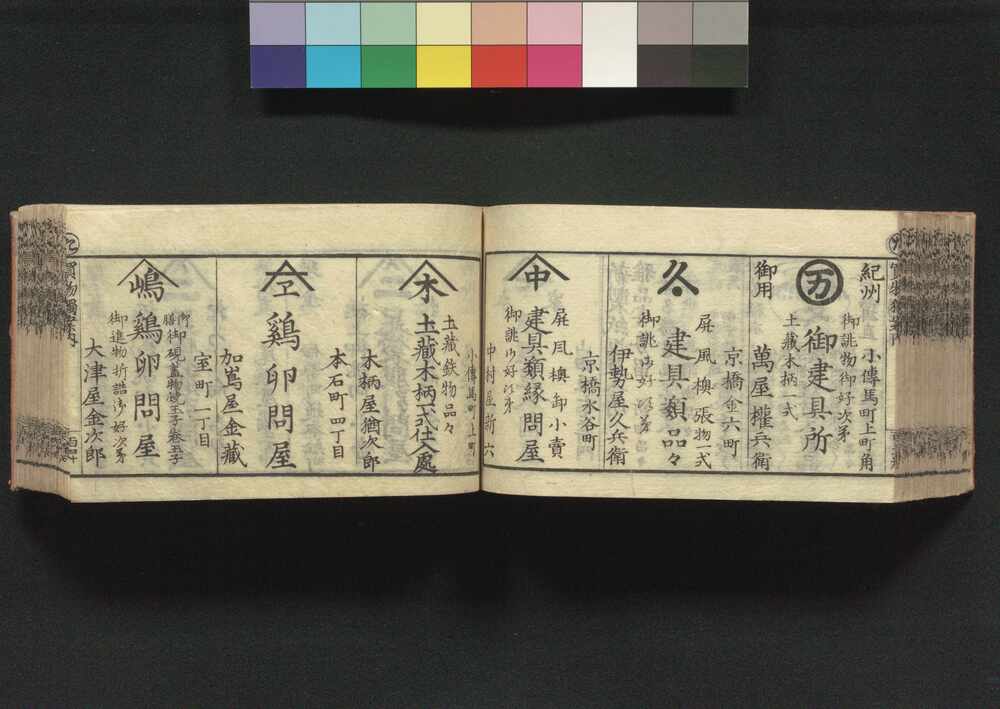 紀州
御用
万
小傳馬町上町角
御誂物御好次第
御建具所
土藏木柄一式
萬屋權兵衛
久
京橋金六町
屏風襖張物一式
建具類品々
御誂御好次第
伊勢屋久兵衛
中
京橋水谷町
屏風襖卸小賣
建具類縁問屋
御誂御好次第
中村屋新六
木
小傳馬町上町
土藏鉄物品々
土藏木柄式仕入處
木柄屋猶次郎
本石町四丁目
鷄卵問屋
加嶌屋金藏
嶋
室町一丁目
鷄卵問屋
御進物折詰御好次第
大津屋金次郎